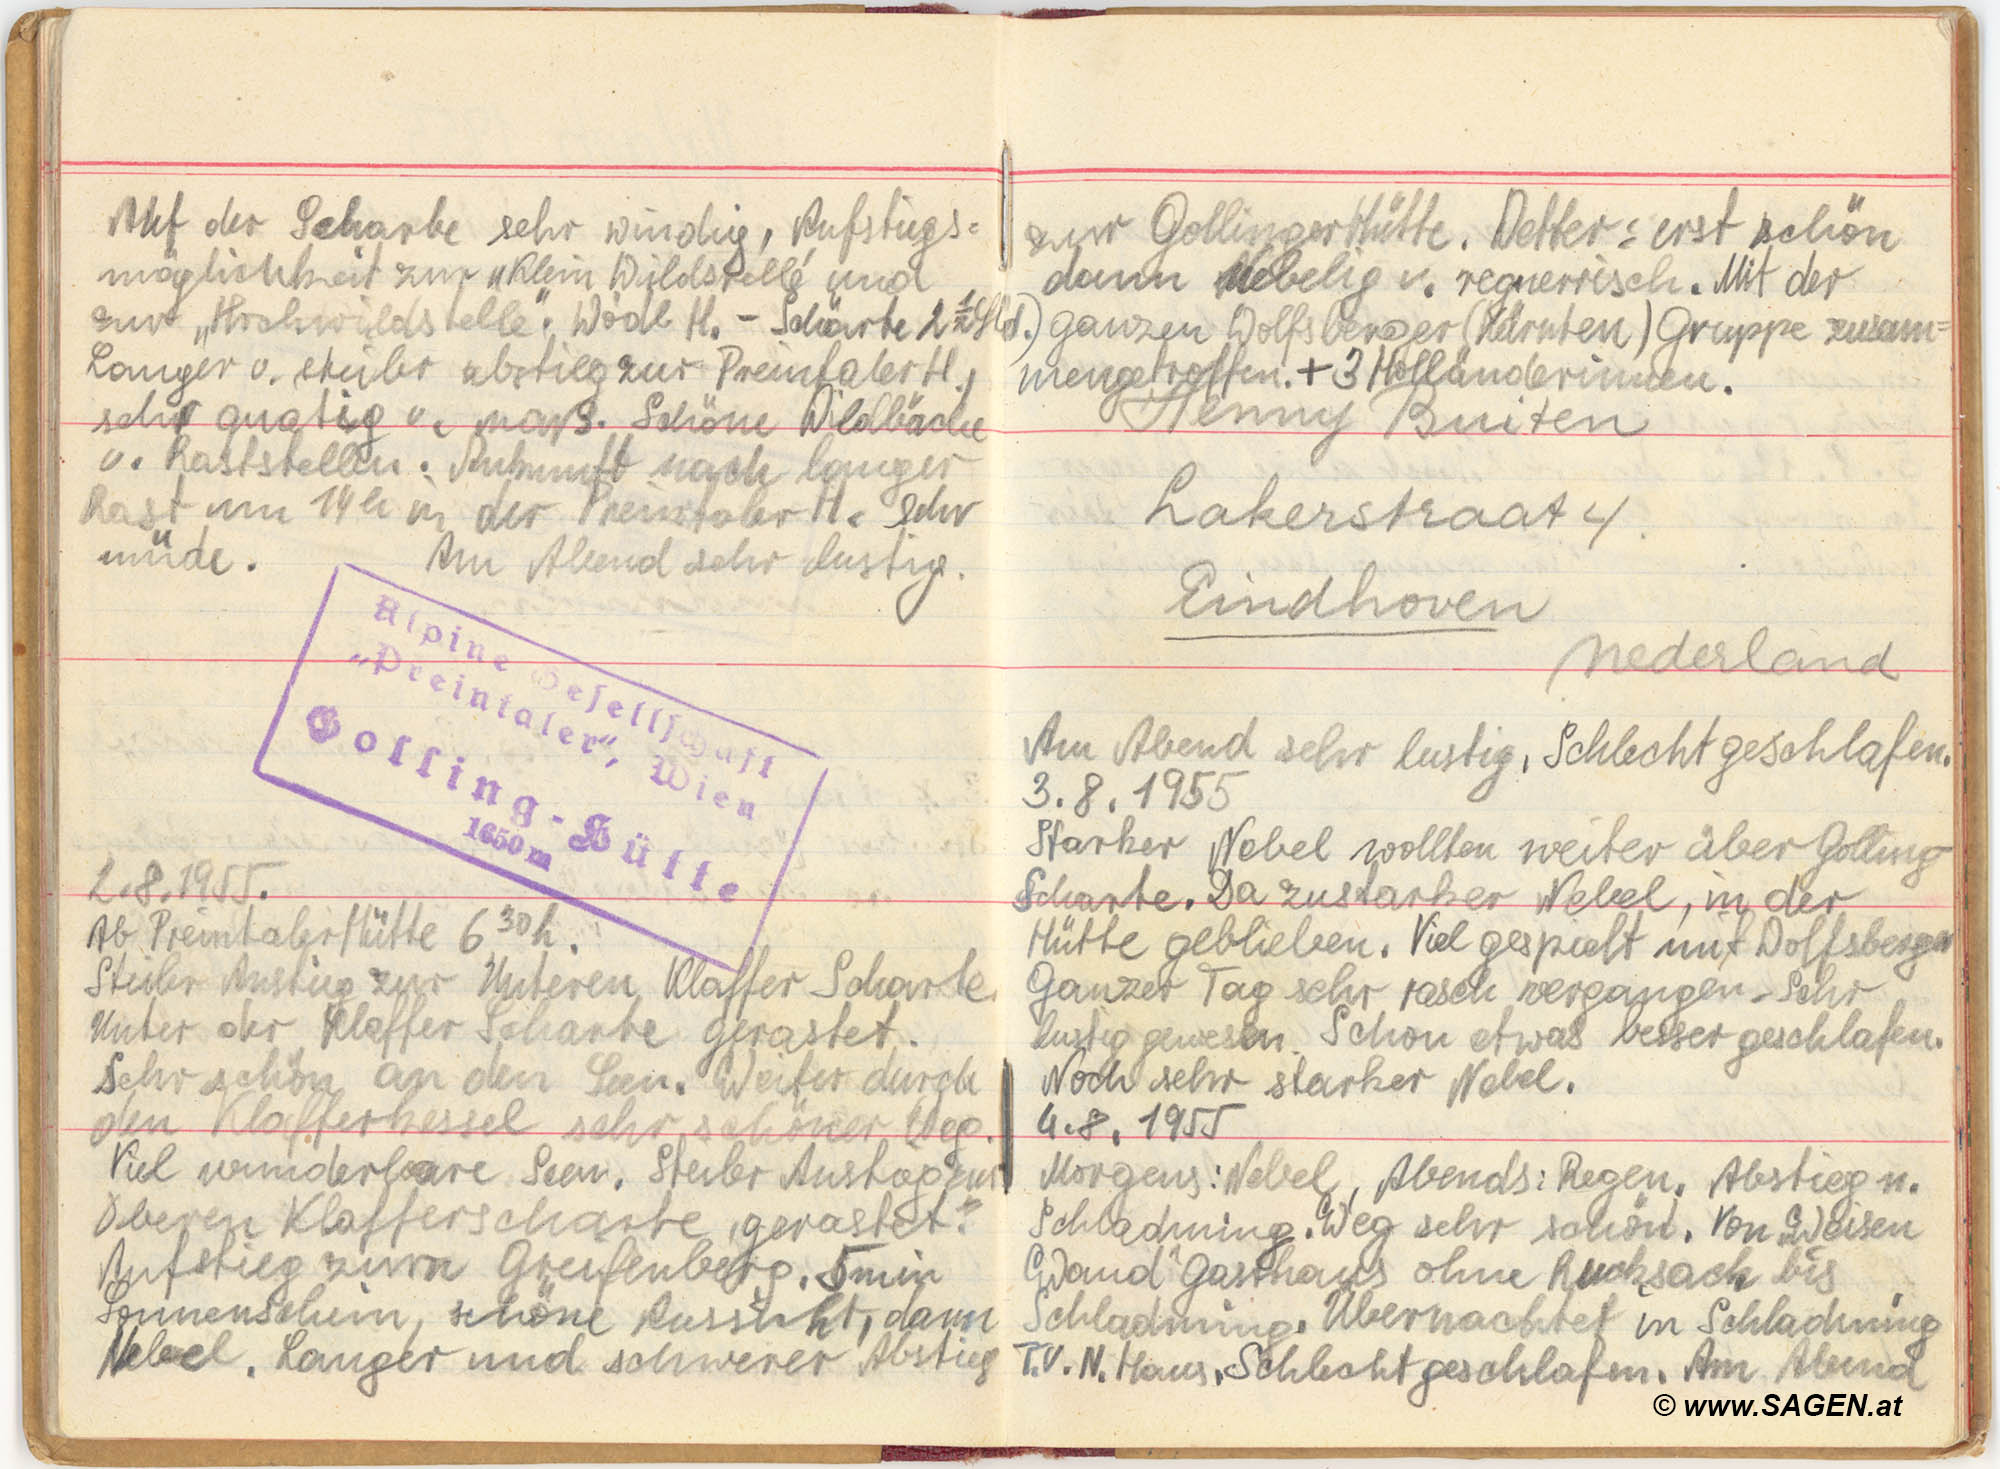 Auf der Scharte sehr windig, Aufstiegs=
möglichkeit zur „Klein Wildstelle" und
zur „Hochwildstelle". Wödl H. - Scharte 2 ½ Std.)
Langer u. steiler abstieg zur Preintaler H.,
sehr quatig u. naß. Schöne Wildbäche
u. Raststellen. Ankunft nach langer
Rast um 14 h in der Preintaler H. Sehr
müde. Am Abend sehr lustig.
Alpine Gesellschaft
„Preintaler", Wien
Golling-Hütte
1650 m
2.8.1955.
Ab Preintaler Hütte 6 30 h.
Steiler Anstieg zur Unteren Klaffer Scharte.
Unter der Klaffer Scharte gerastet.
Sehr schön an den Seen. Weiter durch
den Klafferkessel sehr schöner Weg.
Viel wunderbare Seen. Steiler Anstieg zur
Oberen Klafferscharte, gerastet.
Aufstieg zum Greifenberg. 5 min
Sonnenschein, schöne Aussicht, dann
Nebel. Langer und schwerer Abstieg
zur Gollinger Hütte. Wetter: erst schön
dann Nebelig u. regnerrisch. Mit der
ganzen Wolfsberger (Kärnten) Gruppe zusam=
mengetroffen. + 3 Holländerinnen.
Henny Buiten
Lakerstraat 4.
Eindhoven
Nederland
Am Abend sehr lustig, Schlecht geschlafen.
3.8.1955
Starker Nebel wollten weiter über Golling
Scharte. Da zu starker Nebel, in der
Hütte geblieben. Viel gespielt mit Wolfsberger
Ganzer Tag sehr rasch vergangen. Sehr
lustig gewesen. Schon etwas besser geschlafen.
Noch sehr starker Nebel.
4.8.1955
Morgens: Nebel, Abends: Regen. Abstieg n.
Schladming. Weg sehr schön. Von „Weisen
Wand" Gasthaus ohne Rucksack bis
Schladming. Übernachtet in Schladming
T.V.N. Haus. Schlecht geschlafen. Am Abend
© www.SAGEN.at